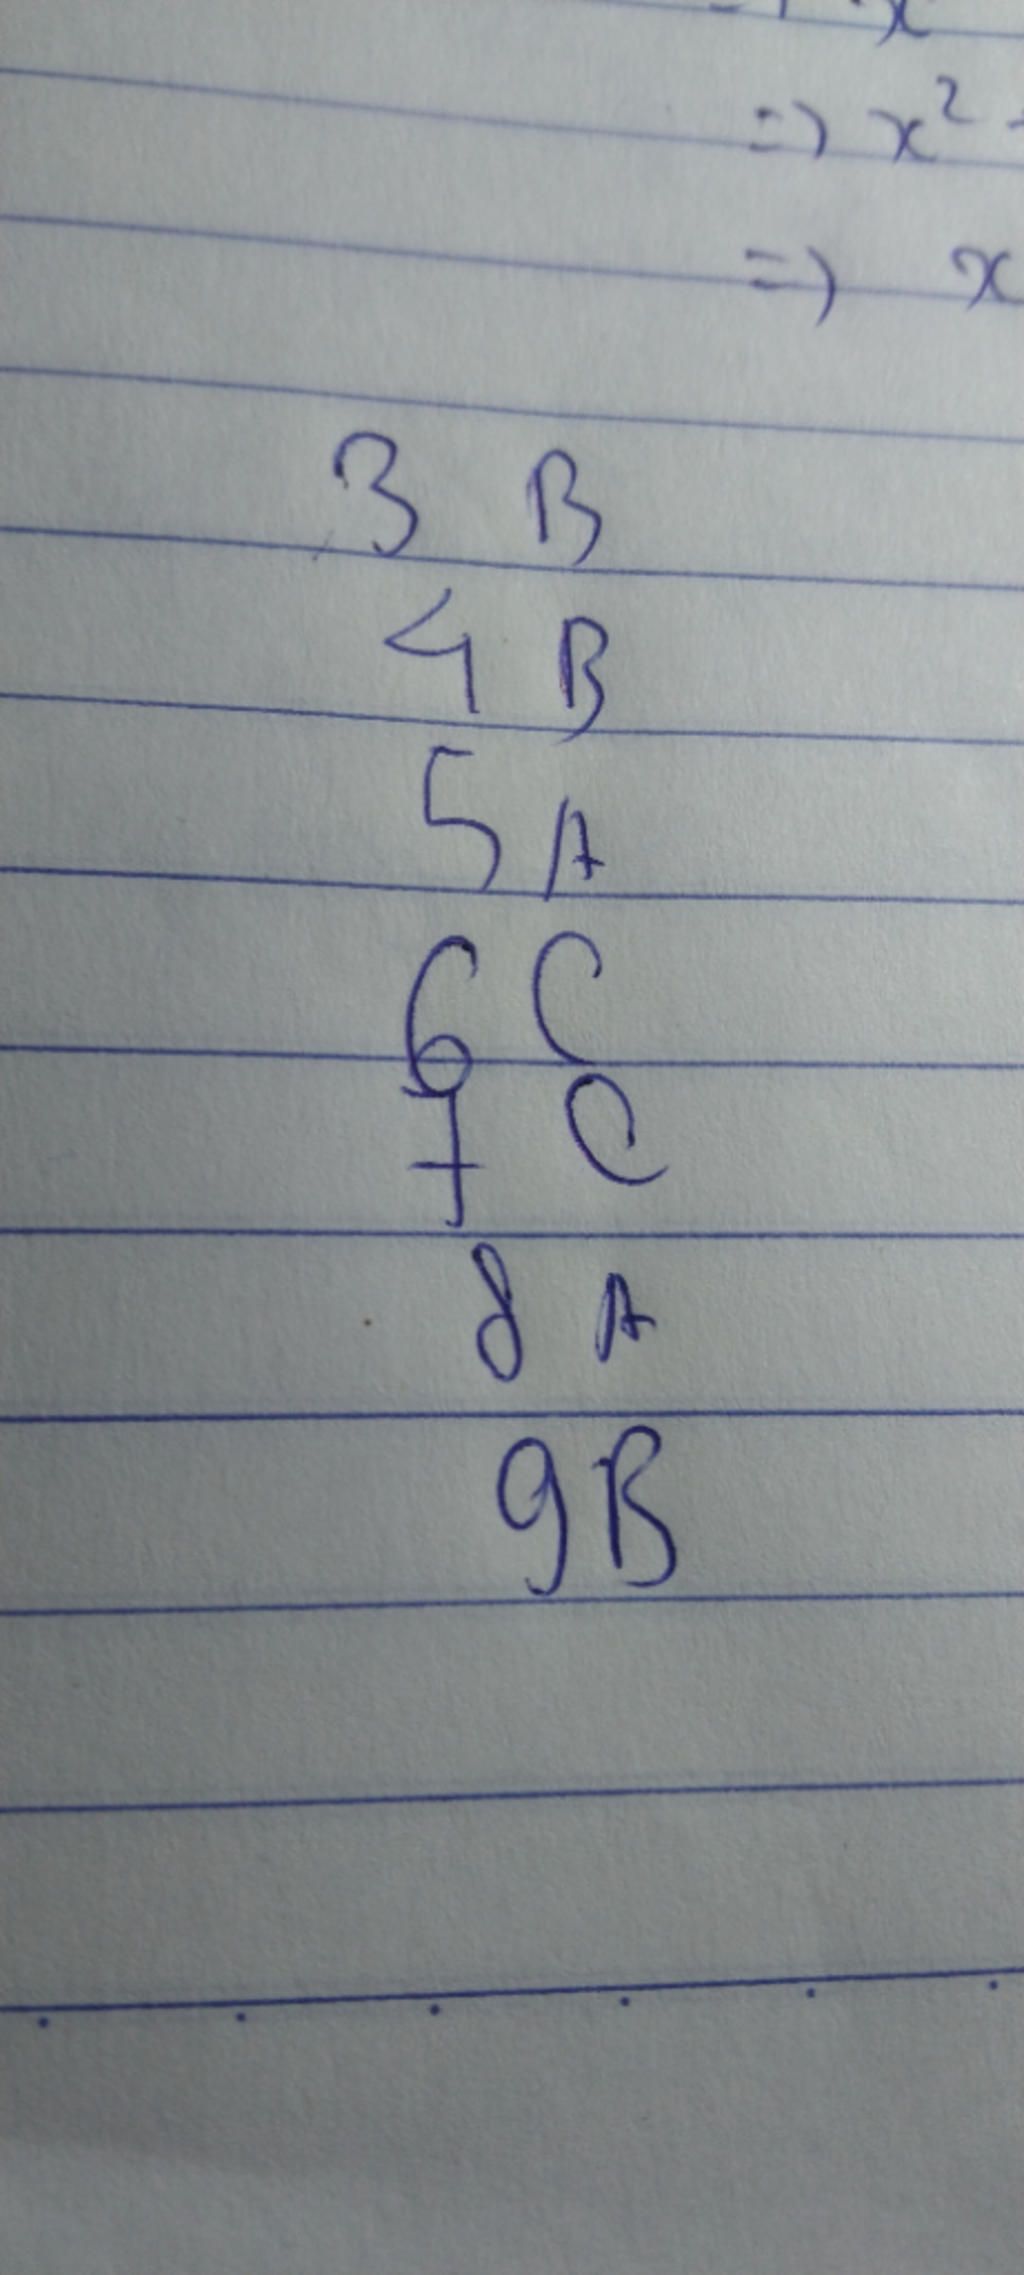 x
=> x²
=> x
3 B
4 B
5 A
6 C
7 C
8 A
9 B